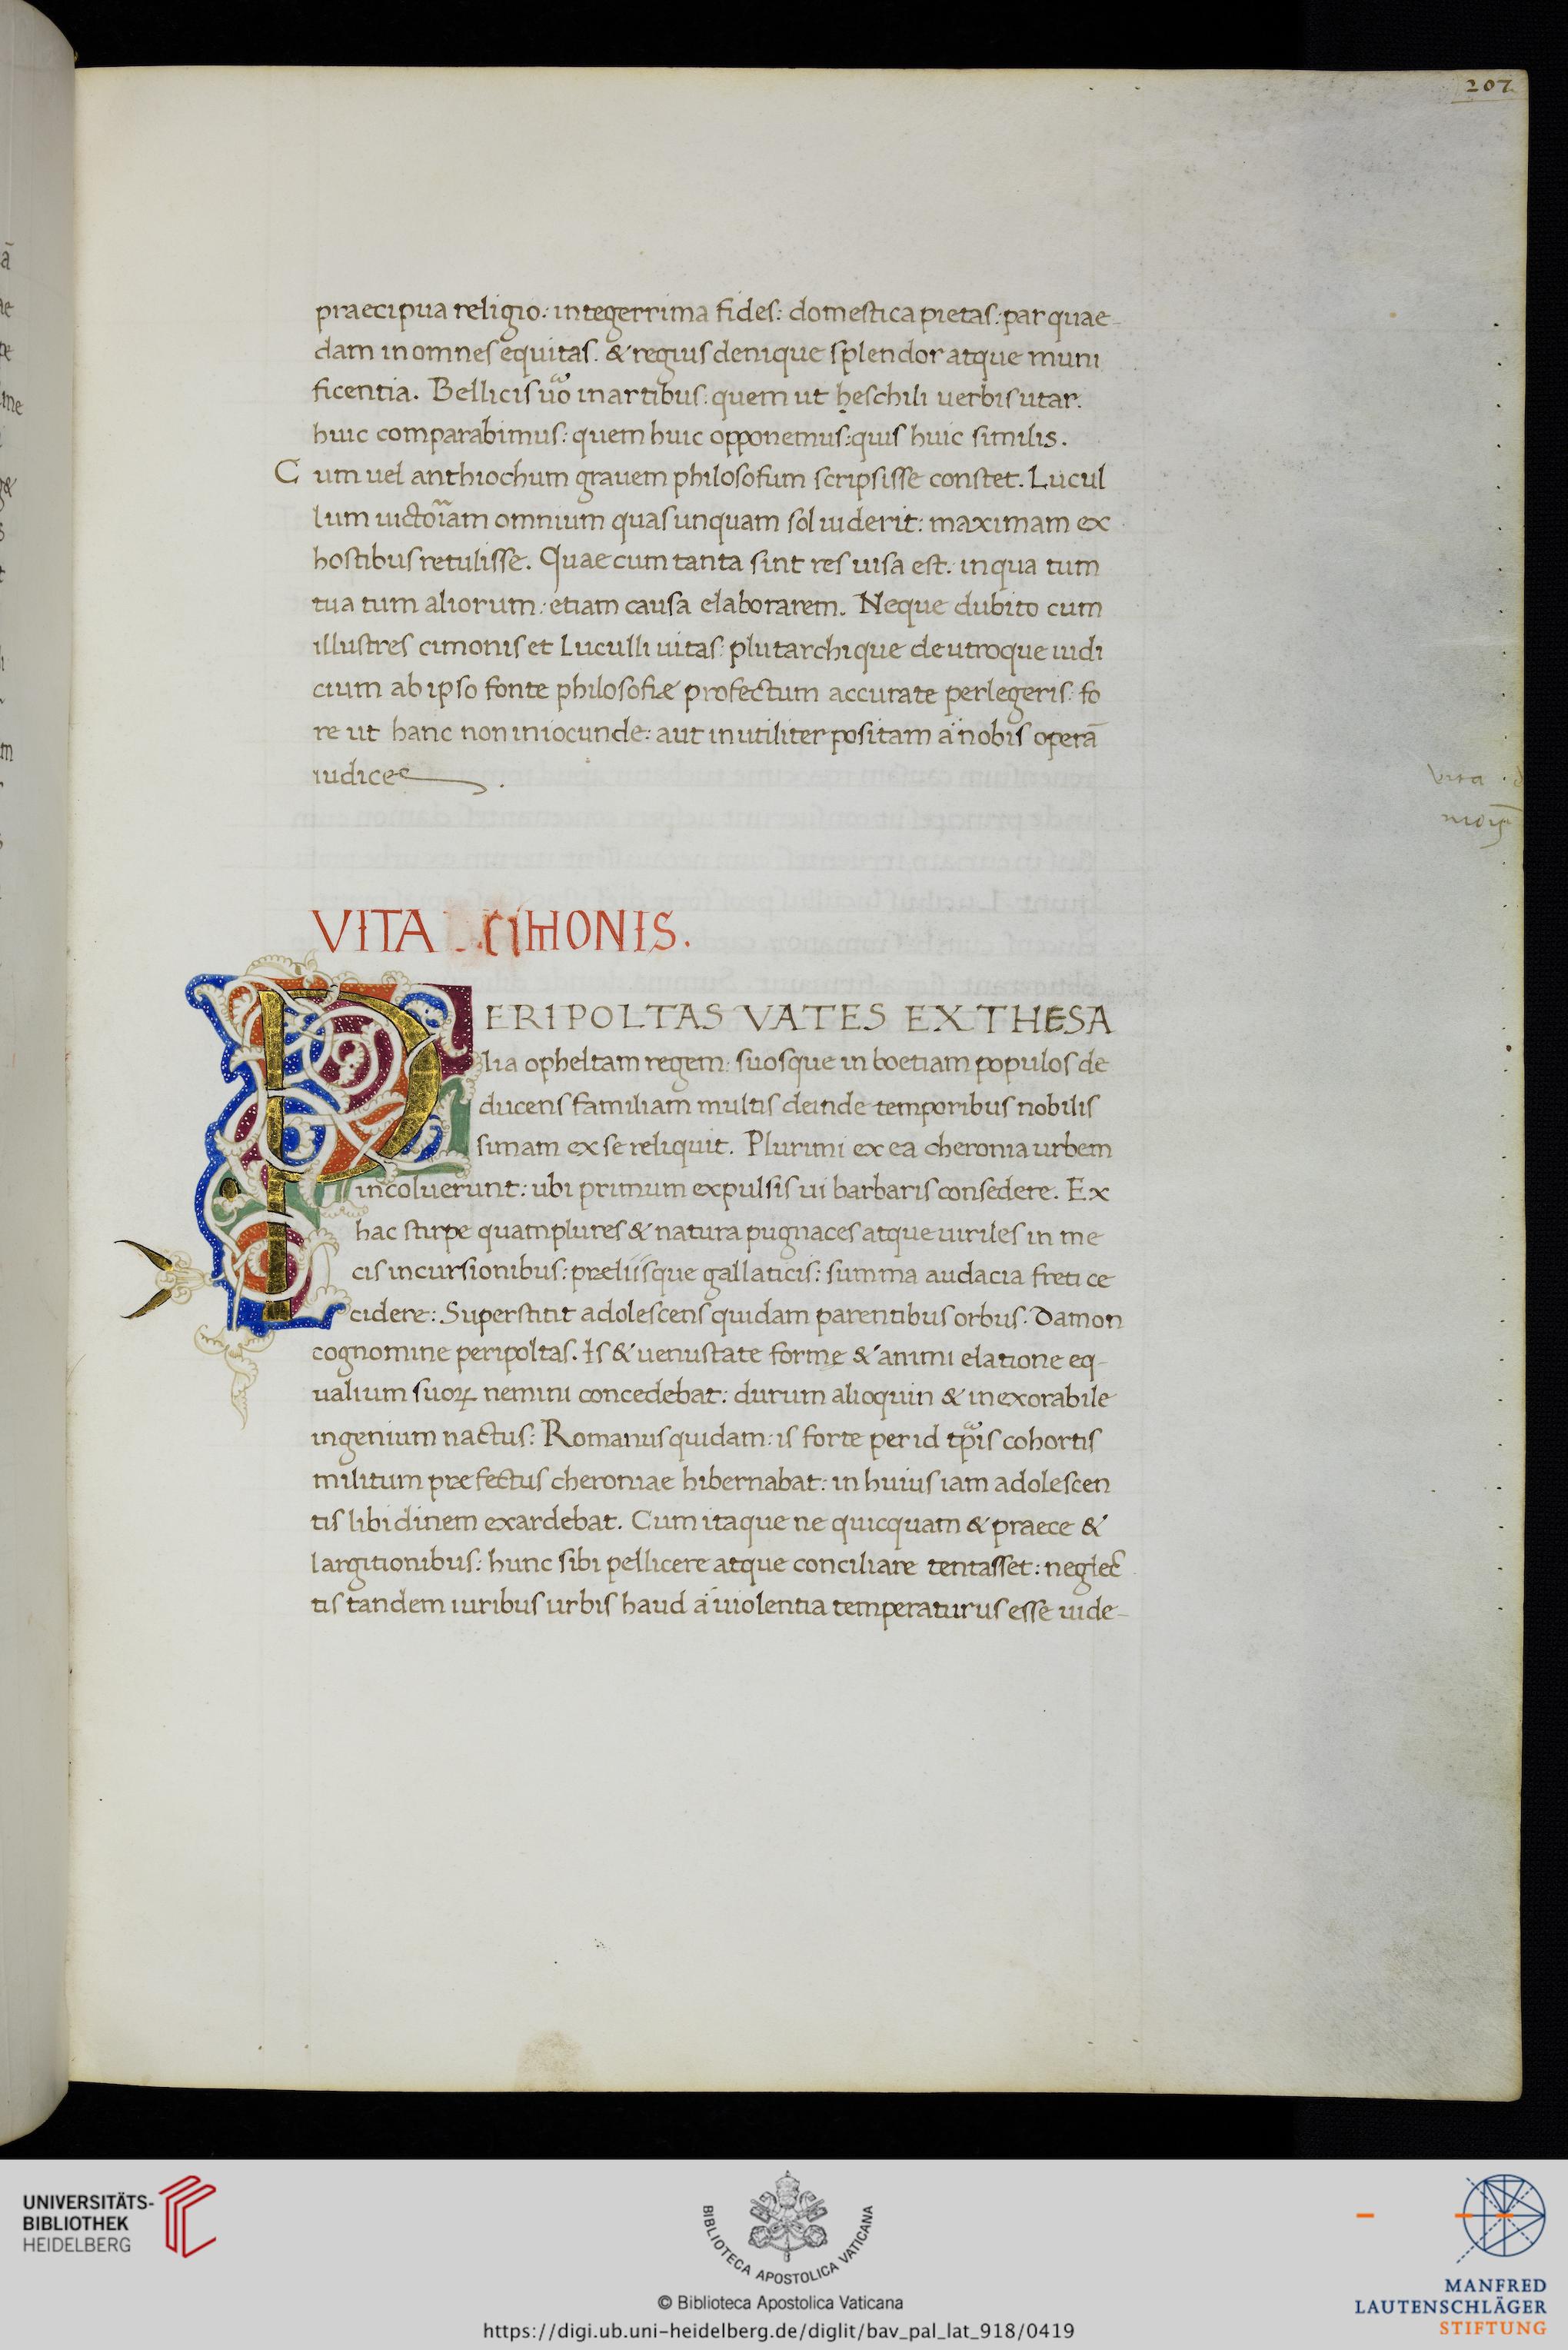 207
praecipua religio: integerrima fides: domestica pietas: par quae-
dam in omnes equitas. & regius denique splendor atque muni
ficentia. Bellicis uo in artibus: quem ut heschili uerbis utar.
huic comparabimus: quem huic opponemus: quis huic similis.
Cum uel anthiochum grauem philosofum scripsisse constet. Lucul
lum uictoriam omnium quas unquam sol uiderit: maximam ex
hostibus retulisse. Quae cum tanta sint res uisa est: in qua tum
tua tum aliorum: etiam causa elaborarem. Neque dubito cum
illustres cimonis et Luculli uitas: plutarchique de utroque iudi
cium ab ipso fonte philosofiæ profectum accurate perlegeris: fo
re ut hanc non iniocunde: aut inutiliter positam a nobis operā
iudices.
Vita
VITA CIMONIS.
PERIPOLTAS VATES EX THESA
lia opheltam regem: suosque in boetiam populos de
ducens familiam multis deinde temporibus nobilis
simam ex se reliquit. Plurimi ex ea cheronia urbem
incoluerunt: ubi primum expulsis ui barbaris consedere. Ex
hac stirpe quamplures & natura pugnaces atque uiriles in me
cis incursionibus: præliisque gallaticis: summa audacia freti ce
cidere: Superstitit adolescens quidam parentibus orbus. Damon
cognomine peripoltas. Is & uenustate forme & animi elatione eq-
ualium suoꝝ nemini concedebat: durum alioquin & inexorabile
ingenium nactus: Romanus quidam: is forte per id tp̄is cohortis
militum præfectus cheroniae hibernabat: in huius iam adolescen
tis libidinem exardebat. Cum itaque ne quicquam & praece &
largitionibus: hunc sibi pellicere atque conciliare tentasset: neglec
tis tandem iuribus urbis haud a uiolentia temperaturus esse uide-
UNIVERSITÄTS-
BIBLIOTHEK
HEIDELBERG
BIBLIOTECA APOSTOLICA VATICANA
© Biblioteca Apostolica Vaticana
https://digi.ub.uni-heidelberg.de/diglit/bav_pal_lat_918/0419
MANFRED
LAUTENSCHLÄGER
STIFTUNG